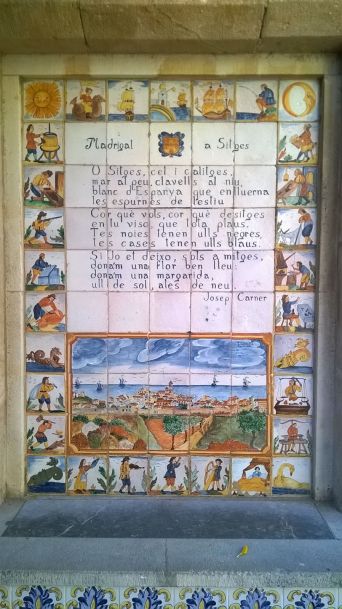 Madrigal a Sitges
O Sitges, cel i calitges,
mar al peu, clavells al niu,
blanc d'Espanya que enlluerna
les espurnes de l'estiu
Cor què vols, cor què desitges
en tu visc que tota plaus.
Tes noies tenen ulls negres,
Tes cases tenen ulls blaus.
Si Jo et deixo, sols a mitges,
dona'm una flor ben lleu:
dona'm una margarida,
ull de sol, ales de neu.
Josep Carner